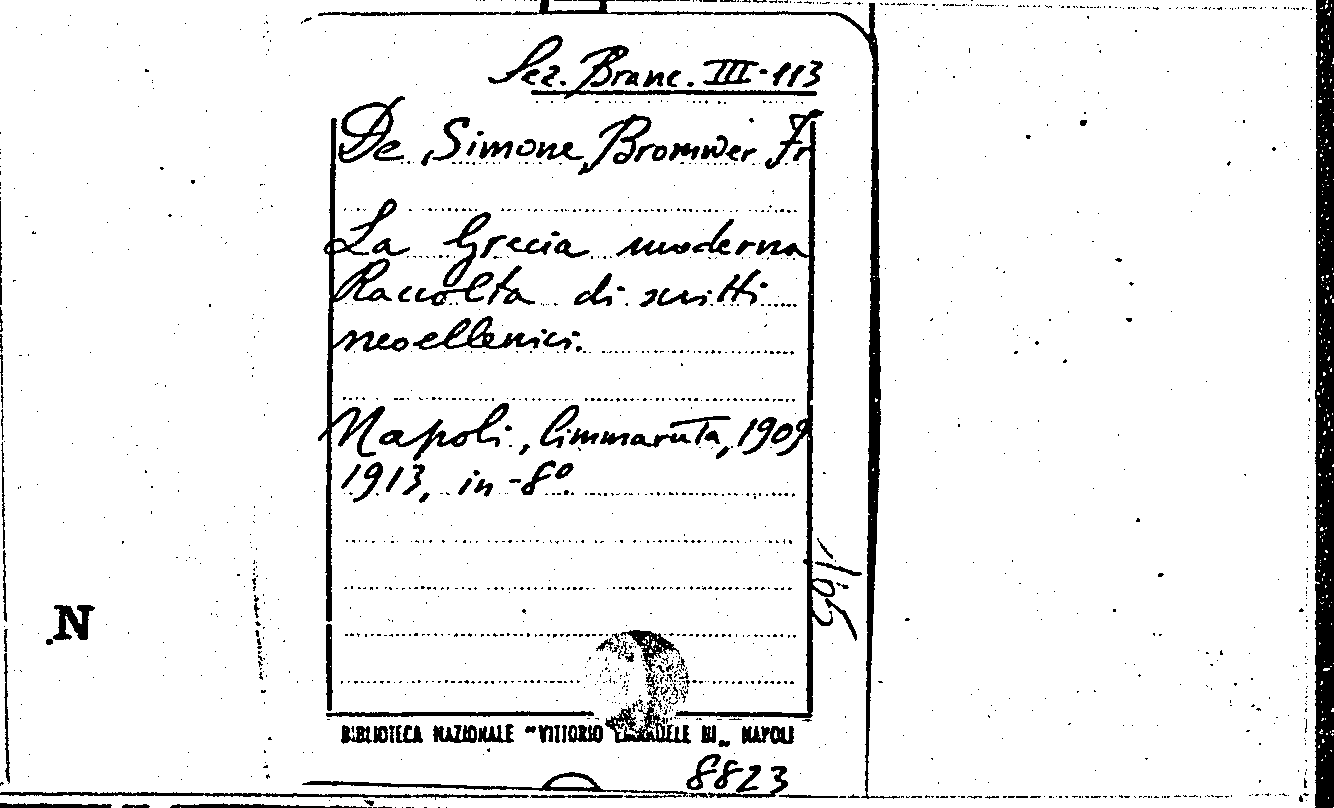 Sez. Branc. III-113
De Simone, Bromwer Fr
La Grecia moderna
Raccolta di scritti
neoellenici.
Napoli, Cimmaruta, 1909
1913, in-8º
N
BIBLIOTECA NAZIONALE "VITTORIO EMANUELE III" NAPOLI
8823